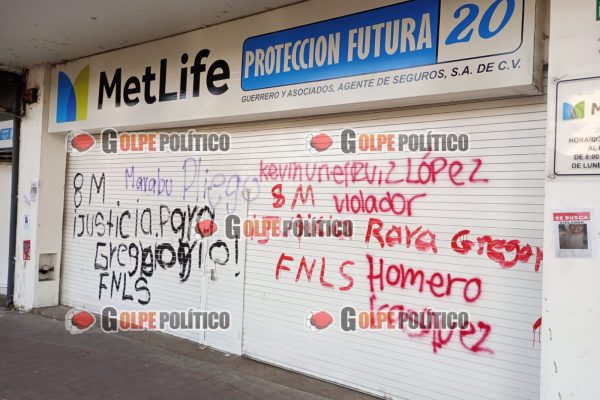 MetLife
PROTECCION FUTURA 20
GUERRERO Y ASOCIADOS, AGENTE DE SEGUROS, S.A. DE C.V.
GOLPE POLÍTICO
GOLPE POLÍTICO
8 M
Marabu Pliego
¡JUSTICIA PARA
Gregorio!
FNLS
GOLPE POLÍTICO
Kevin Unef Ruiz López
8 M violador
Para Gregor
FNLS Homero
GOLPE POLÍTICO
GOLPE POLÍTICO
MetLife
HORARIO
SE BUSCA